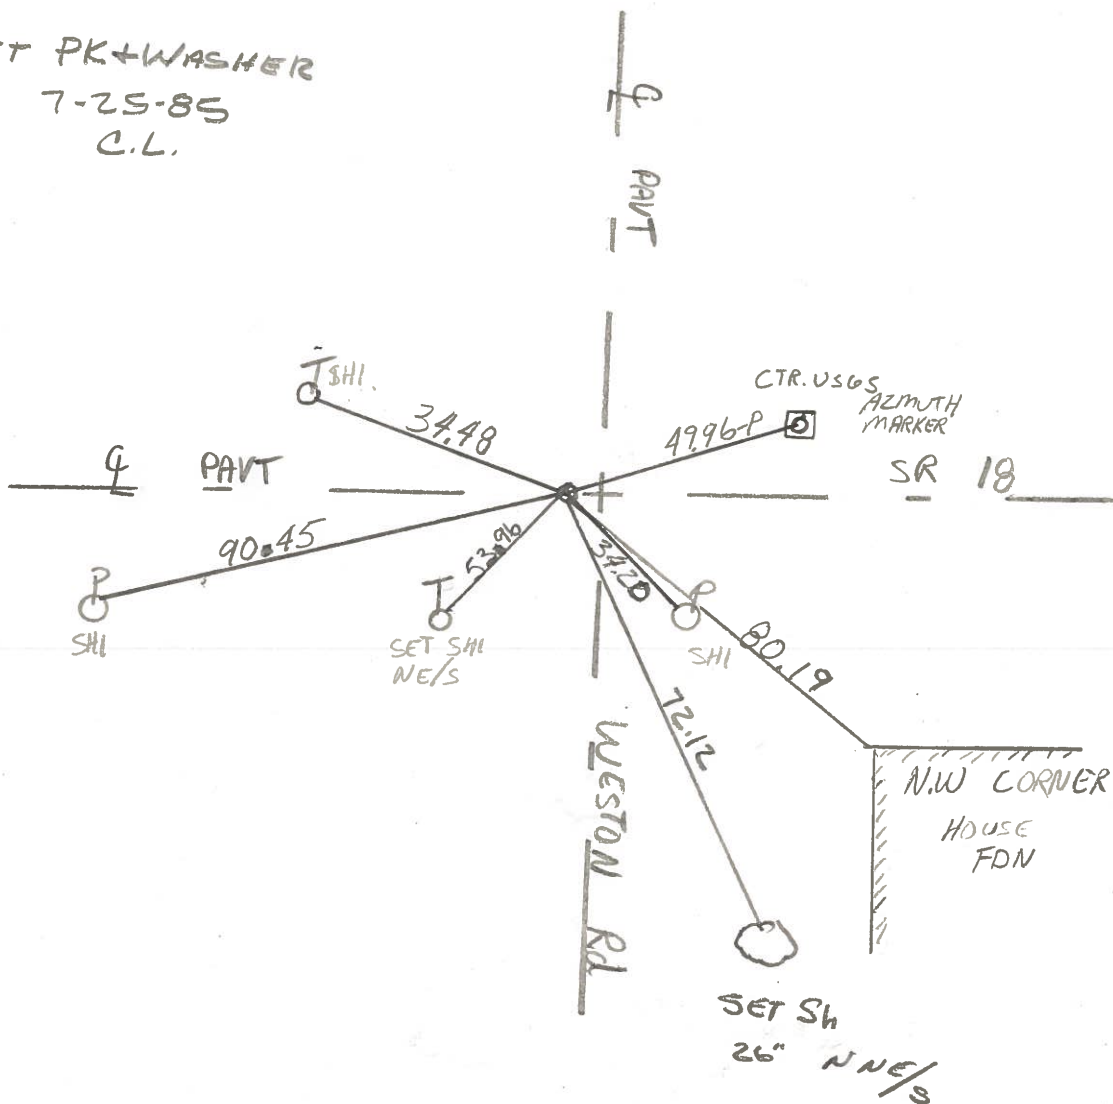 PK+WASHER
7-25-85
C.L.
℄
PAVT
T SHI.
34.48
CTR. USGS
AZMUTH
MARKER
49.96-P
℄ PAVT
SR 18
90.45
P
SHI
53.96
T
SET SHI
NE/S
34.20
P
SHI
80.19
72.12
WESTON Rd
N.W CORNER
HOUSE
FDN
SET Sh
26" NNE/S